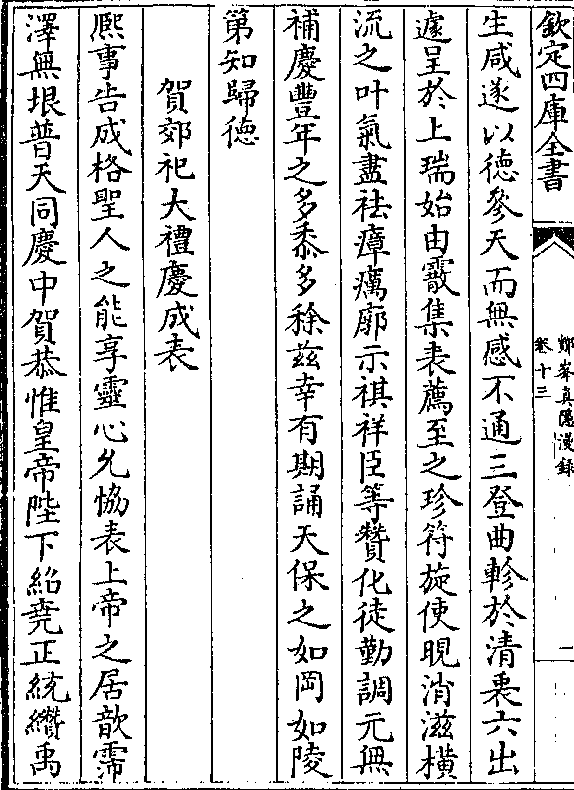 欽定四庫全書
鄮峯真隱漫録
卷十三
二
生咸遂以德參天而無感不通三登曲軫於清衷六出
遽呈於上瑞始由霰集表薦至之珍符旋使晛消滋橫
流之叶氣盡祛瘴癘廓示祺祥臣等贊化徒勤調元無
補慶豐年之多黍多稌兹幸有期誦天保之如岡如陵
第知歸德
賀郊祀大禮慶成表
熈事告成格聖人之能享靈心允恊表上帝之居歆霈
澤無垠普天同慶中賀恭惟皇帝陛下紹堯正統纘禹